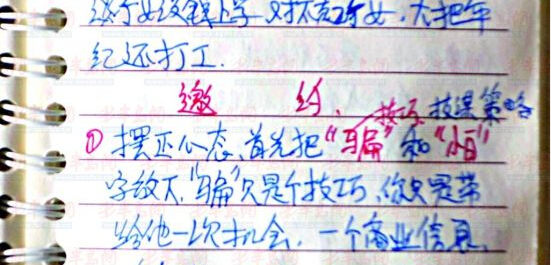 子女没钱上学 对不起子女，大把年
纪还打工.
邀 约. 技巧 策略
①摆正心态,首先把"骗"和"怕"
字放下,"骗"只是个技巧,你只是带
给他一次机会,一个商业信息,